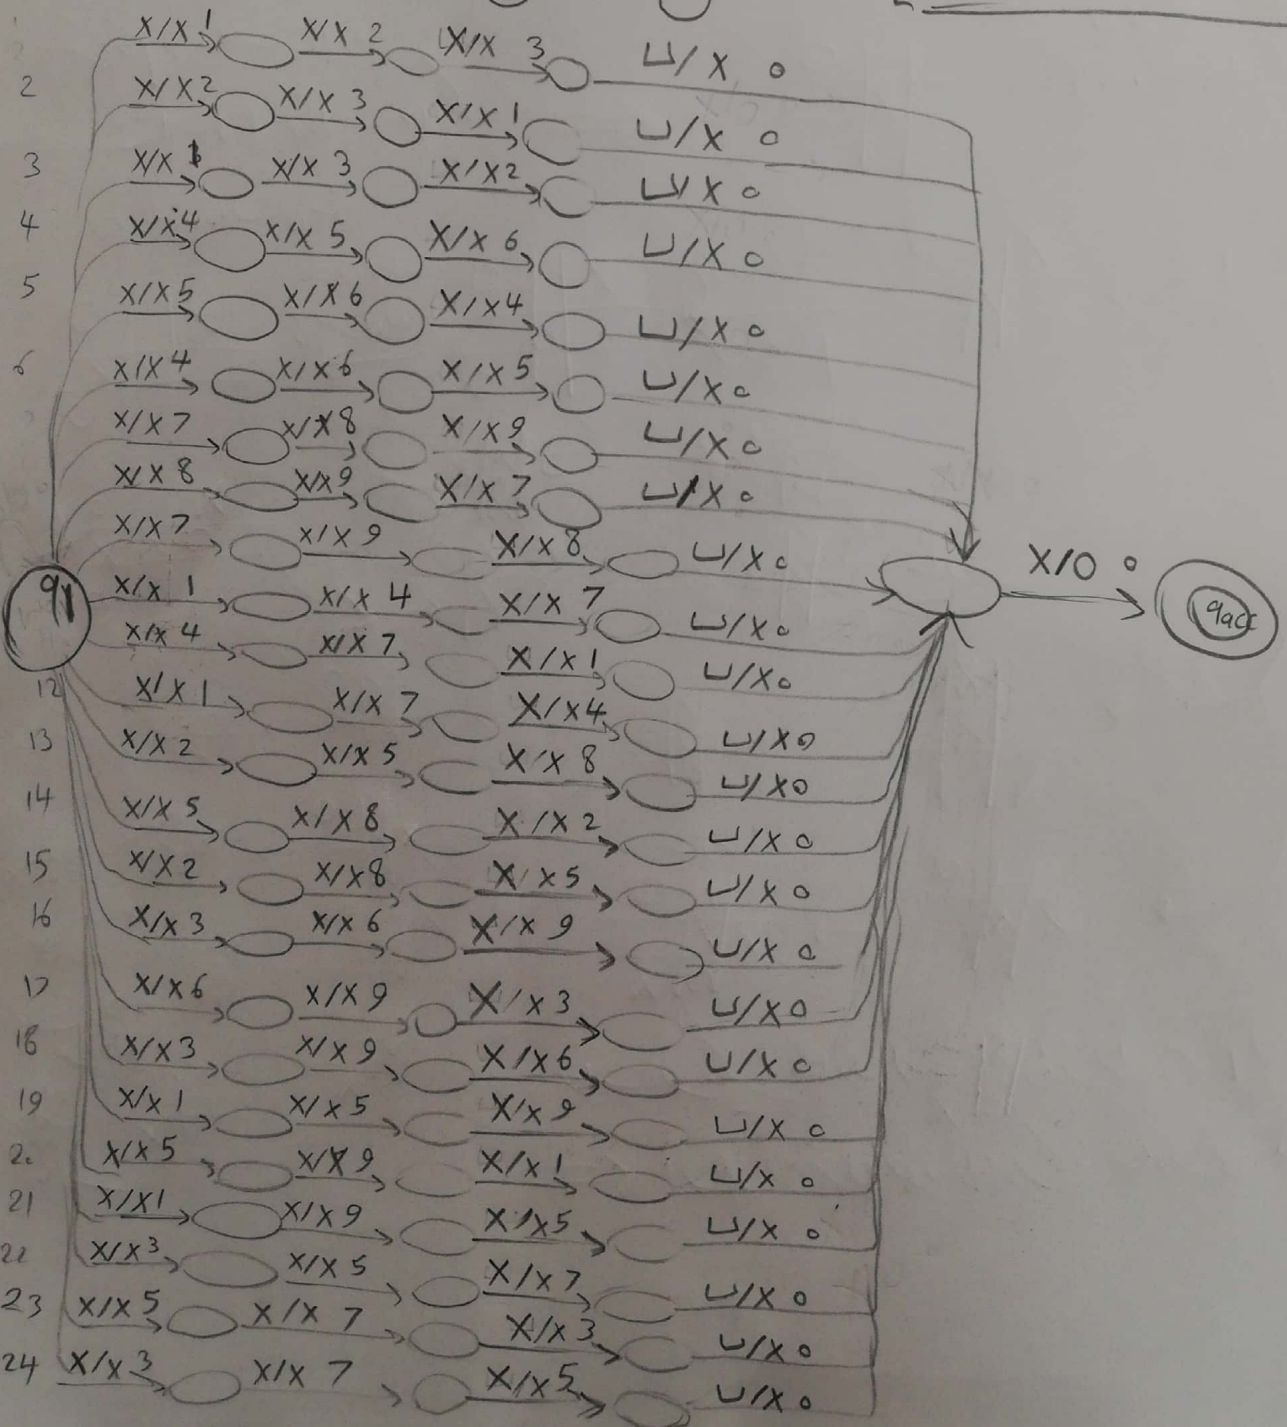 X/X 1 X/X 2 X/X 3 ⊔/X 0
2 X/X 2 X/X 3 X/X 1 ⊔/X 0
3 X/X 1 X/X 3 X/X 2 ⊔/X 0
4 X/X 4 X/X 5 X/X 6 ⊔/X 0
5 X/X 5 X/X 6 X/X 4 ⊔/X 0
6 X/X 4 X/X 6 X/X 5 ⊔/X 0
X/X 7 X/X 8 X/X 9 ⊔/X 0
X/X 8 X/X 9 X/X 7 ⊔/X 0
X/X 7 X/X 9 X/X 8 ⊔/X 0
X/0 0
q1 X/X 1 X/X 4 X/X 7 ⊔/X 0 qacc
X/X 4 X/X 7 X/X 1 ⊔/X 0
12 X/X 1 X/X 7 X/X 4 ⊔/X 0
13 X/X 2 X/X 5 X/X 8 ⊔/X 0
14 X/X 5 X/X 8 X/X 2 ⊔/X 0
15 X/X 2 X/X 8 X/X 5 ⊔/X 0
16 X/X 3 X/X 6 X/X 9 ⊔/X 0
17 X/X 6 X/X 9 X/X 3 ⊔/X 0
18 X/X 3 X/X 9 X/X 6 ⊔/X 0
19 X/X 1 X/X 5 X/X 9 ⊔/X 0
20 X/X 5 X/X 9 X/X 1 ⊔/X 0
21 X/X 1 X/X 9 X/X 5 ⊔/X 0
22 X/X 3 X/X 5 X/X 7 ⊔/X 0
23 X/X 5 X/X 7 X/X 3 ⊔/X 0
24 X/X 3 X/X 7 X/X 5 ⊔/X 0